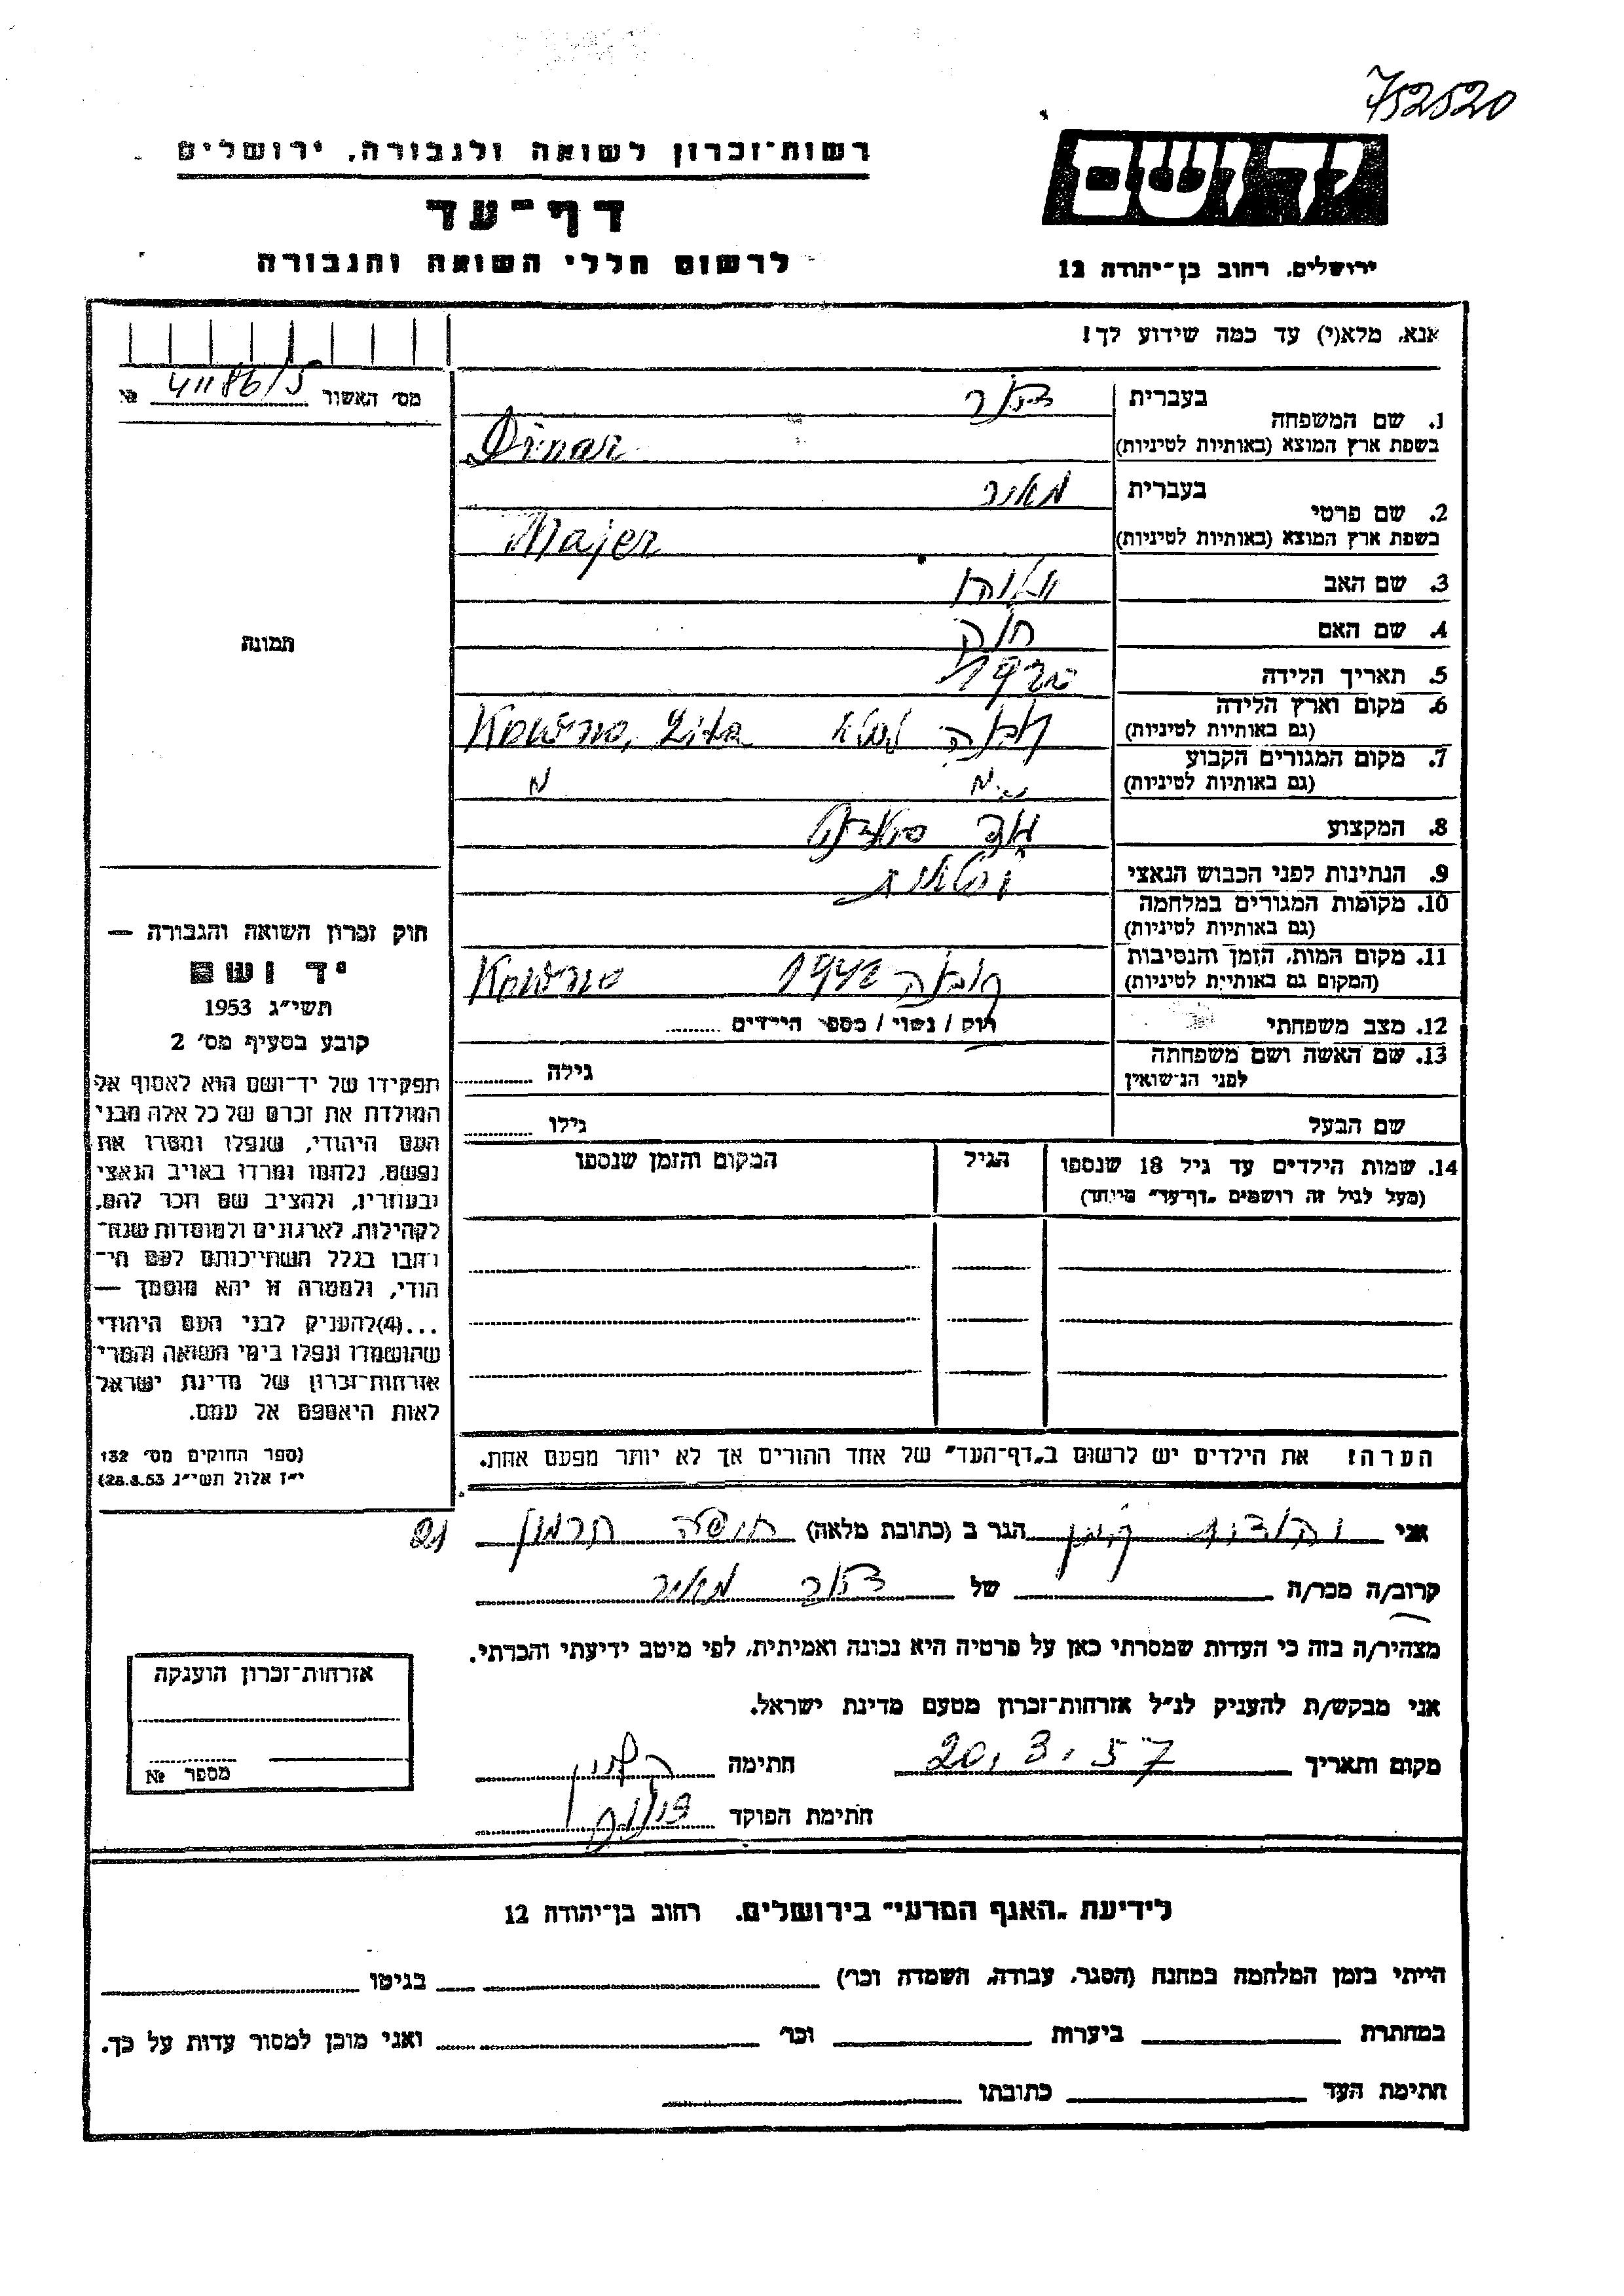 752520
רשות־זכרון לשואה ולגבורה, ירושלים
דף־עד
לרשום חללי השואה והגבורה
יד ושם
ירושלים, רחוב בן־יהודה 12
אנא, מלא(י) עד כמה שידוע לך!
מס׳ האשור 41186/5 №
1. שם המשפחה
בעברית
בשפת ארץ המוצא (באותיות לטיניות) Dinar
2. שם פרטי
בעברית מאיר
בשפת ארץ המוצא (באותיות לטיניות) Majer
3. שם האב
4. שם האם
5. תאריך הלידה 1920
6. מקום וארץ הלידה
(גם באותיות לטיניות) קובנה ליטא Kowno, Lita
7. מקום המגורים הקבוע
(גם באותיות לטיניות)
8. המקצוע
9. הנתינות לפני הכבוש הנאצי
10. מקומות המגורים במלחמה
(גם באותיות לטיניות)
11. מקום המות, הזמן והנסיבות
(המקום גם באותיית לטיניות) קובנה 1942 Kowno
12. מצב משפחתי רווק / נשוי / מספר הילדים
13. שם האשה ושם משפחתה
לפני הנישואין גילה
שם הבעל גילו
14. שמות הילדים עד גיל 18 שנספו הגיל המקום והזמן שנספו
(מעל לגיל זה רושמים „דף־עד״ מיוחד)
תמונה
חוק זכרון השואה והגבורה —
יד ושם
תשי״ג 1953
קובע בסעיף מס׳ 2
תפקידו של יד־ושם הוא לאסוף אל
המולדת את זכרם של כל אלה מבני
העם היהודי, שנפלו ומסרו את
נפשם, נלחמו ומרדו באויב הנאצי
ובעוזריו, ולהציב שם וזכר להם,
לקהילות, לארגונים ולמוסדות שנח־
רבו בגלל השתייכותם לעם הי־
הודי, ולמטרה זו יהא מוסמך —
...(4)להעניק לבני העם היהודי
שהושמדו ונפלו בימי השואה והמרי
אזרחות־זכרון של מדינת ישראל
לאות היאספם אל עמם.
(ספר החוקים מס׳ 132
י״ז אלול תשי״ג 28.8.53)
הערה! את הילדים יש לרשום ב„דף־העד״ של אחד ההורים אך לא יותר מפעם אחת.
אני הגר ב (כתובת מלאה) 21
קרוב/ה מכר/ה של מאיר
מצהיר/ה בזה כי העדות שמסרתי כאן על פרטיה היא נכונה ואמיתית, לפי מיטב ידיעתי והכרתי.
אני מבקש/ת להעניק לנ״ל אזרחות־זכרון מטעם מדינת ישראל.
מקום ותאריך 20.3.57 חתימה
חתימת הפוקד
אזרחות־זכרון הוענקה
מספר №
לידיעת „האגף המדעי״ בירושלים, רחוב בן־יהודה 12
הייתי בזמן המלחמה במחנה (הסגר, עבודה, השמדה וכו׳) בגיטו
במחתרת ביערות וכו׳ ואני מוכן למסור עדות על כך.
חתימת העד כתובתו